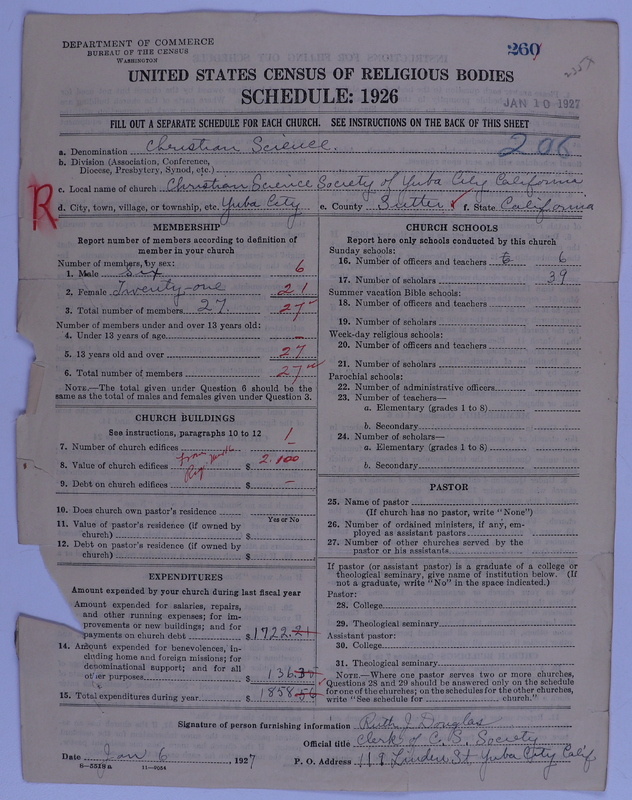 DEPARTMENT OF COMMERCE
BUREAU OF THE CENSUS
WASHINGTON
260
UNITED STATES CENSUS OF RELIGIOUS BODIES
SCHEDULE: 1926
JAN 10 1927
FILL OUT A SEPARATE SCHEDULE FOR EACH CHURCH. SEE INSTRUCTIONS ON THE BACK OF THIS SHEET
a. Denomination Christian Science.
206
b. Division (Association, Conference,
Diocese, Presbytery, Synod, etc.)
c. Local name of church Christian Science Society of Yuba City California
R
d. City, town, village, or township, etc. Yuba City e. County Sutter f. State California
MEMBERSHIP
Report number of members according to definition of
member in your church
Number of members, by sex:
1. Male Six 6
2. Female Twenty-one 21
3. Total number of members 27. 27
Number of members under and over 13 years old:
4. Under 13 years of age –
5. 13 years old and over 27
6. Total number of members 27
NOTE.—The total given under Question 6 should be the
same as the total of males and females given under Question 3.
CHURCH BUILDINGS
See instructions, paragraphs 10 to 12
7. Number of church edifices 1
8. Value of church edifices $ 2.100
9. Debt on church edifices $ –
10. Does church own pastor's residence
Yes or No
11. Value of pastor's residence (if owned by
church) $
12. Debt on pastor's residence (if owned by
church) $
EXPENDITURES
Amount expended by your church during last fiscal year
Amount expended for salaries, repairs,
and other running expenses; for im-
provements or new buildings; and for
payments on church debt $ 1722.21
14. Amount expended for benevolences, in-
cluding home and foreign missions; for
denominational support; and for all
other purposes 136.35
15. Total expenditures during year $ 1858.56
CHURCH SCHOOLS
Report here only schools conducted by this church
Sunday schools:
16. Number of officers and teachers 6 6
17. Number of scholars 39
Summer vacation Bible schools:
18. Number of officers and teachers
19. Number of scholars
Week-day religious schools:
20. Number of officers and teachers
21. Number of scholars
Parochial schools:
22. Number of administrative officers
23. Number of teachers—
a. Elementary (grades 1 to 8)
b. Secondary
24. Number of scholars—
a. Elementary (grades 1 to 8)
b. Secondary
PASTOR
25. Name of pastor
(If church has no pastor, write "None")
26. Number of ordained ministers, if any, em-
ployed as assistant pastors
27. Number of other churches served by the
pastor or his assistants
If pastor (or assistant pastor) is a graduate of a college or
theological seminary, give name of institution below. (If
not a graduate, write "No" in the space indicated.)
Pastor:
28. College
29. Theological seminary
Assistant pastor:
30. College
31. Theological seminary
NOTE.—Where one pastor serves two or more churches,
Questions 28 and 29 should be answered only on the schedule
for one of the churches; on the schedules for the other churches,
write "See schedule for church."
Signature of person furnishing information Ruth J Douglas
Official title Clerk of C. S. Society
Date Jan 6, 1927 P. O. Address 118 Linden St Yuba City Calif
8-5518a 11-9054